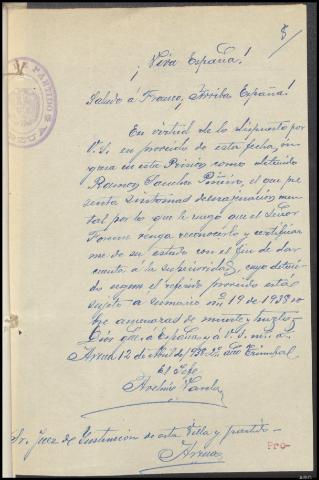 5/
¡Viva España!
Saludo á Franco, ¡Arriba España!
En virtud de lo dispuesto por
V.S. en proveido de esta fecha, in
gresa en esta Prision como detenido
Ramon Sanchez Piñeiro, el que pre
senta sintomas de enagenación men
tal por lo que le ruego que el Señor
Forense venga reconocerlo y certificar
me de su estado con el fin de dar
cuenta á la superioridad, cuyo deteni
do segun el referido proveido está
sujeto a sumario nº 19 de 1938 so
bre amenazas de muerte y
Dios gue. a España y á V.S. m. a.
Arzua 12 de Abril de 1938. 2º año Triunfal
El Jefe
Avelino Varela
Sr. Juez de Instrucion de esta Villa y partido.
Arzua
Pro-
PARTIDO